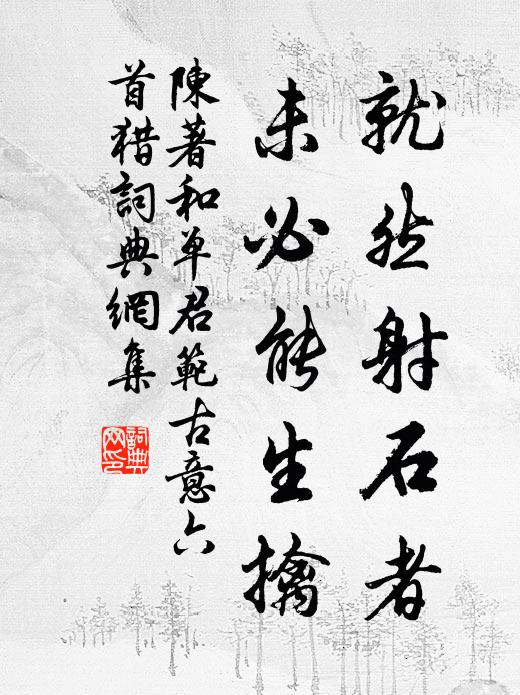 就然射石者
未必能生擒
陳著和单君範古意六
首猎詞典網集
詞典
网印